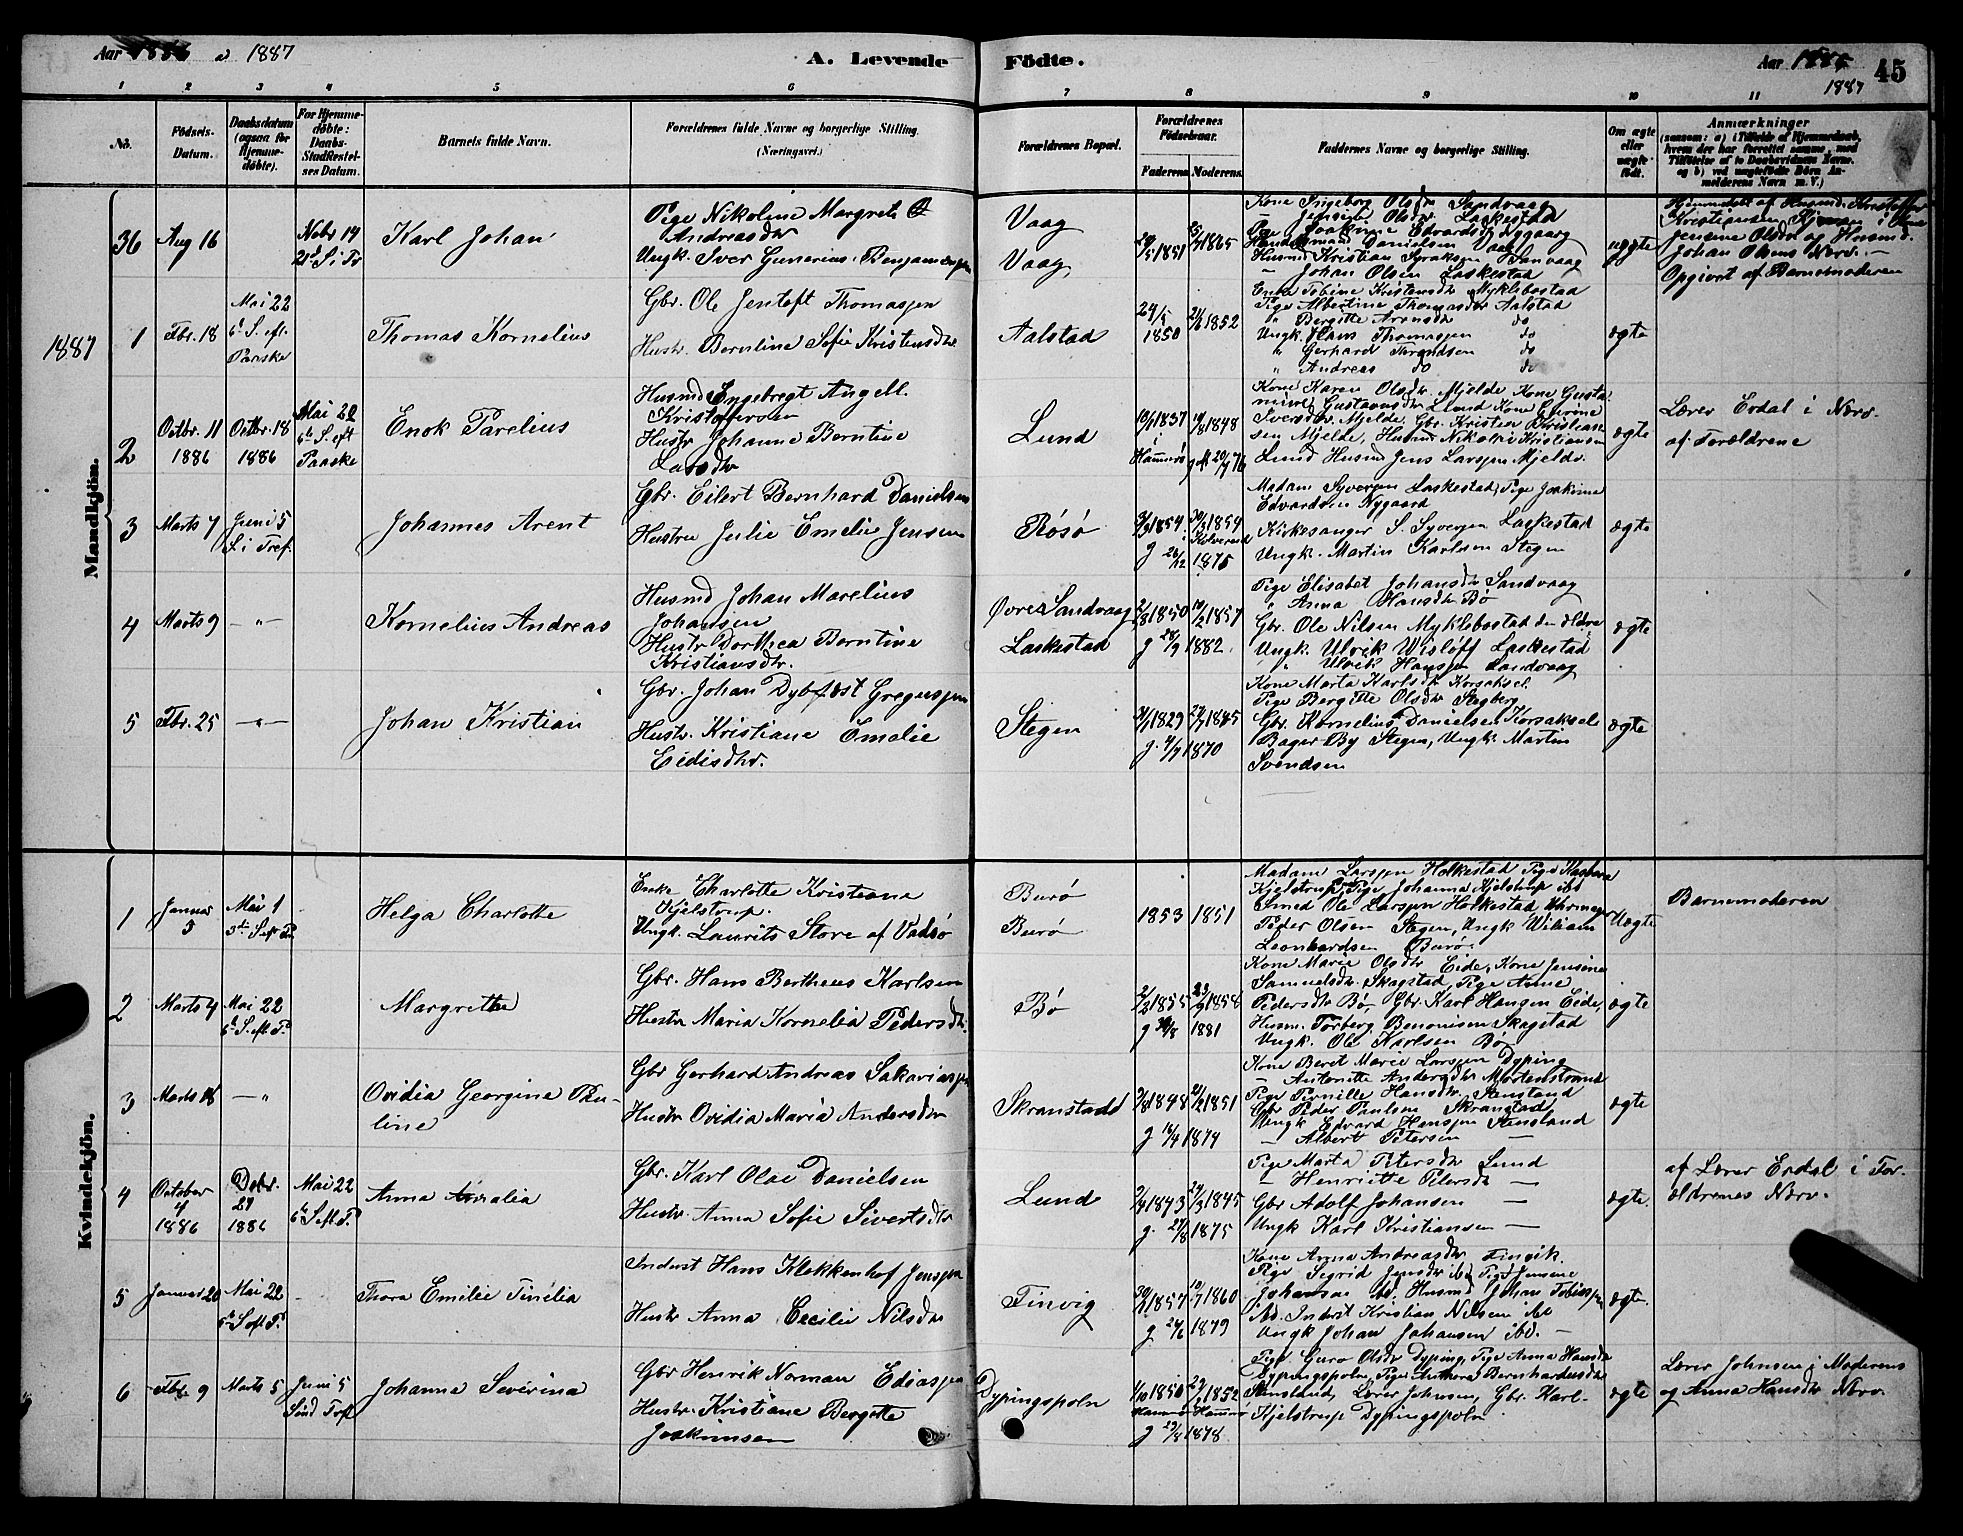 Aar 1886 & 1887
A. Levende Födte.
Aar 1886 45
1887
1 2 3 4 5 6 7 8 9 10 11
No.
Födsels-Datum.
Daabsdatum (ogsaa for Hjemme-döbte).
For Hjemme-döbte: Daabs-Stadfæstel-ses Datum.
Barnets fulde Navn.
Forældrenes fulde Navne og borgerlige Stilling.
(Næringsvei.)
Forældrenes Bopæl.
Forældrenes Födselsaar.
Faderens Moderens
Faddernes Navne og borgerlige Stilling.
Om ægte eller uægte födt.
Anmærkninger
(saasom: a) i Tilfælde af Hjemmedaab, hvem der har forrettet samme, med Tilföielse af to Daabsvidners Navne. og b) ved uægtefödte Börn Anmelderens Navn m. V.)
Mandkjön.
36 Aug 16
Nobr 14
21d S. i Tr
Karl Johan
Pige Nikoline Margrete
Andreasdtr
Ungk. Iver Gunerius Benjaminsen
Vaag
Vaag
20/5 1851 1865
Kone Ingeborg Olsdtr Sandvaag
— Jensine Olsdtr. Laskestad
Pige Joakime Edvardsd Nygaard
Handelsmand Danielsen Vaag
Husmd Kristian Syraksen Sandvaag
— Johan Olsen Laskestad
uægte
Hjemmedøbt af Husmd. Kristoffer
Kristiansen
Jensine Olsdtr og Husmd.
Johan Olsens Nærv. —
Opgivet af Barnemoderen
1887
1 Fbr. 18
Mai 22
6d S. eft.
Paaske
Thomas Kornelius
Gbr. Ole Jentoft Thomassen
Hustr. Berntine Sofie Kristensdtr
Aalstad
24/5 1850 2/6 1852
Enke Tobine Kristensdtr Myklebostad
Pige Albertine Thomasdtr Aalstad
" Bergitte Arnsdtr do
Ungk. Hans Thomassen do
" Gerhard Torundsen do
" Andreas do do
ægte
2 Octbr. 11
1886
Octbr. 18
1886
Mai 22
6te S. eft
Paaske
Enok Parelius
Husmd Engebregt Angell
Kristoffersen
Hustr Johanne Berntine
Larsdtr
Lund
1837 i Hammerø 1848
Kone Karen Olsdtr. Mjelde, Kone Gusta-
Gustavsdtr Lund Kone Gurine
Sversdtr. Mjelde, Gbr. Kristen Kristian-
sen Mjelde, Husmd Nikolai Kristiansen
Lund Husmd Jens Larssen Mjelde
ægte
Lærer Erdal i Nærv.
af Forældrene
3 Marts 7
Juni 5
S. i Tref.
Johannes Arent
Gbr. Eilert Bernhard Danielsen
Hustru Julie Emelie Jensen
Røsø
1854 1859
Kolvereid
g 26/12 1875
Madam Syversen Laskestad, Pige Joakime
Edvardsen Nygaard
Kirkesanger S. Syversen Laskestad
Ungk. Martin Karlsen Stegen
ægte
4 Marts 9 — " —
Kornelius Andreas
Husmd Johan Marelius
Johansen
Hustr Dorthea Berntine
Kristiansdtr.
Øvre Sandvaag
Laskestad
1850 1857
g 28/9 1882
Pige Elisabet Johansdtr Sandvaag
" Anna Hansdtr Bø
Gbr. Ole Nilsen Myklebostad den ældre
Ungk. Ulrik Wisløff Laskestad
" Ulrik Hansen Sandvaag
ægte
5 Fbr. 25 — " —
Johan Kristian
Gbr. Johan Dybfest Gregussen
Hustr. Kristiane Emalie
Eidisdtr.
Stegen
1829 1845
g. 4/9 1870
Kone Marta Karlsdtr Korsaksel.
Pige Bergitte Olsdtr Stegberg
Gbr. Kornelius Danielsen Korsaksel
Bager By Stegen, Ungk. Martin
Svendsen
ægte
Kvindekjön.
1 Januar
3
Mai 1
3die S. eft P.
Helga Charlotte
Enke Charlotte Kristiane
Kjelstrup.
Ungk. Laurits Store af Vadsø
Burø
Burø
1853 1851
Madam Larssen Holkestad Pige
Kjelstrup, Pige Johanna Kjelstrup ibd
Ole Larssen Holkestad Uhrmager
Peder Olsen Stegen, Ungk Wiliam
Leonhardsen Burø
Uægte
Barnemoderen
2 Marts 4
Mai 22
6te S. eft P.
Margrethe
Gbr. Hans Bertheus Karlsen
Hustr Maria Kornelia Pedersdtr.
Bø
1855 1858
g 30/8 1881
Kone Marie Olsdtr Eide, Kone Jensine
Samuelsdtr. Skagstad, Pige Anne
Pedersdtr Bø, Gbr. Karl Hansen Eide,
Husm. Torberg Benonisen Skagstad
Ungk. Ole Karlsen Bø
ægte
3 Marts 18 — "
Ovidia Georgine Pau-
line
Gbr Gerhard Andreas Sakariassen
Hustr Ovidia Maria Andersdtr
Skranstadd
1848 1851
g 16/9 1874
Kone Beret Marie Larssen Dyping
— Antonette Andersdtr Mortenstrand
Pige Pernille Hansdtr. Stensland
Gbr Peder Paulsen Skranstad
Ungk Edvard Hanssen Stensland
— Albert Petersen —
ægte
4 October
4
1886
Dcbr.
29
1886
Mai 22
6te S eft P.
Anna Amalia
Gbr. Karl Olai Danielsen
Hustr. Anna Sofie Sivertsdtr
Lund
1843 1845
g. 27/8 1875
Pige Marta Petersdtr Lund
— Henriette Petersdtr —
Gbr Adolf Johansen —
Ungk Karl Kristiansen —
ægte.
af Lærer Erdal i For-
ældrenes Nærv.
5 Januar 20
Mai 22
6te S. eft P.
Thora Emilie Tinelia
Inderst Hans Klokkenhof Jenssen
Hustr Anna Cecilie Nilsdtr
Finvig
1857 1860
g 24/6 1879
Kone Anna Andreasdtr Finvik.
Pige Sigrid Jensdtr ibd, Pige Jensine
Johansen ibd. Husmd Johan Tobiassen
ibd. Inderst Kristian Nilsen ibd
Ungk Johan Johansen ibd. —
ægte.
6 Fbr. 9
Marts 5
Juni 5
Sønd Tref
Johanna Severina
Gbr Henrik Norman Ediassen
Hustr. Kristiane Bergette
Joakimsen
Dypingspoln
1850 1852
Hammerø Hammerø
g 29/8 1878
Pige Guro Olsdtr Dyping, Pige Anna Hansdtr
Dypingspoln, Pige Anthora Bernhardusdtr
Stensland, Lærer Johnsen, Gbr. Karl
Kjelstrup Dypingspoln
ægte
Lærer Johnsen i Moderens
og Anna Hansdtr Nærv.